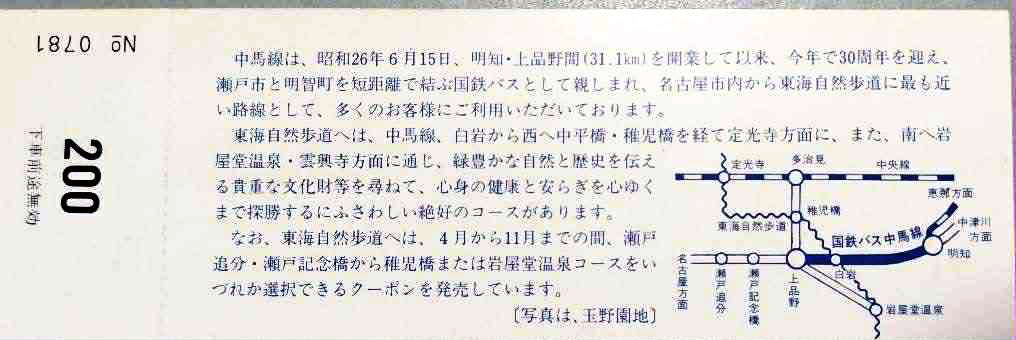 № 0781
200
下車前途無効
中馬線は、昭和26年6月15日、明知・上品野間(31.1km)を開業して以来、今年で30周年を迎え、
瀬戸市と明智町を短距離で結ぶ国鉄バスとして親しまれ、名古屋市内から東海自然歩道に最も近
い路線として、多くのお客様にご利用いただいております。
東海自然歩道へは、中馬線、白岩から西へ中平橋・稚児橋を経て定光寺方面に、また、南へ岩
屋堂温泉・雲興寺方面に通じ、緑豊かな自然と歴史を伝え
る貴重な文化財等を尋ねて、心身の健康と安らぎを心ゆく
まで探勝するにふさわしい絶好のコースがあります。
なお、東海自然歩道へは、4月から11月までの間、瀬戸
追分・瀬戸記念橋から稚児橋または岩屋堂温泉コースをい
づれか選択できるクーポンを発売しています。
〔写真は、玉野園地〕
定光寺
多治見
中央線
恵那方面
稚児橋
東海自然歩道
国鉄バス中馬線
中津川
方面
明知
名古屋方面
瀬戸追分
瀬戸記念橋
上品野
白岩
岩屋堂温泉